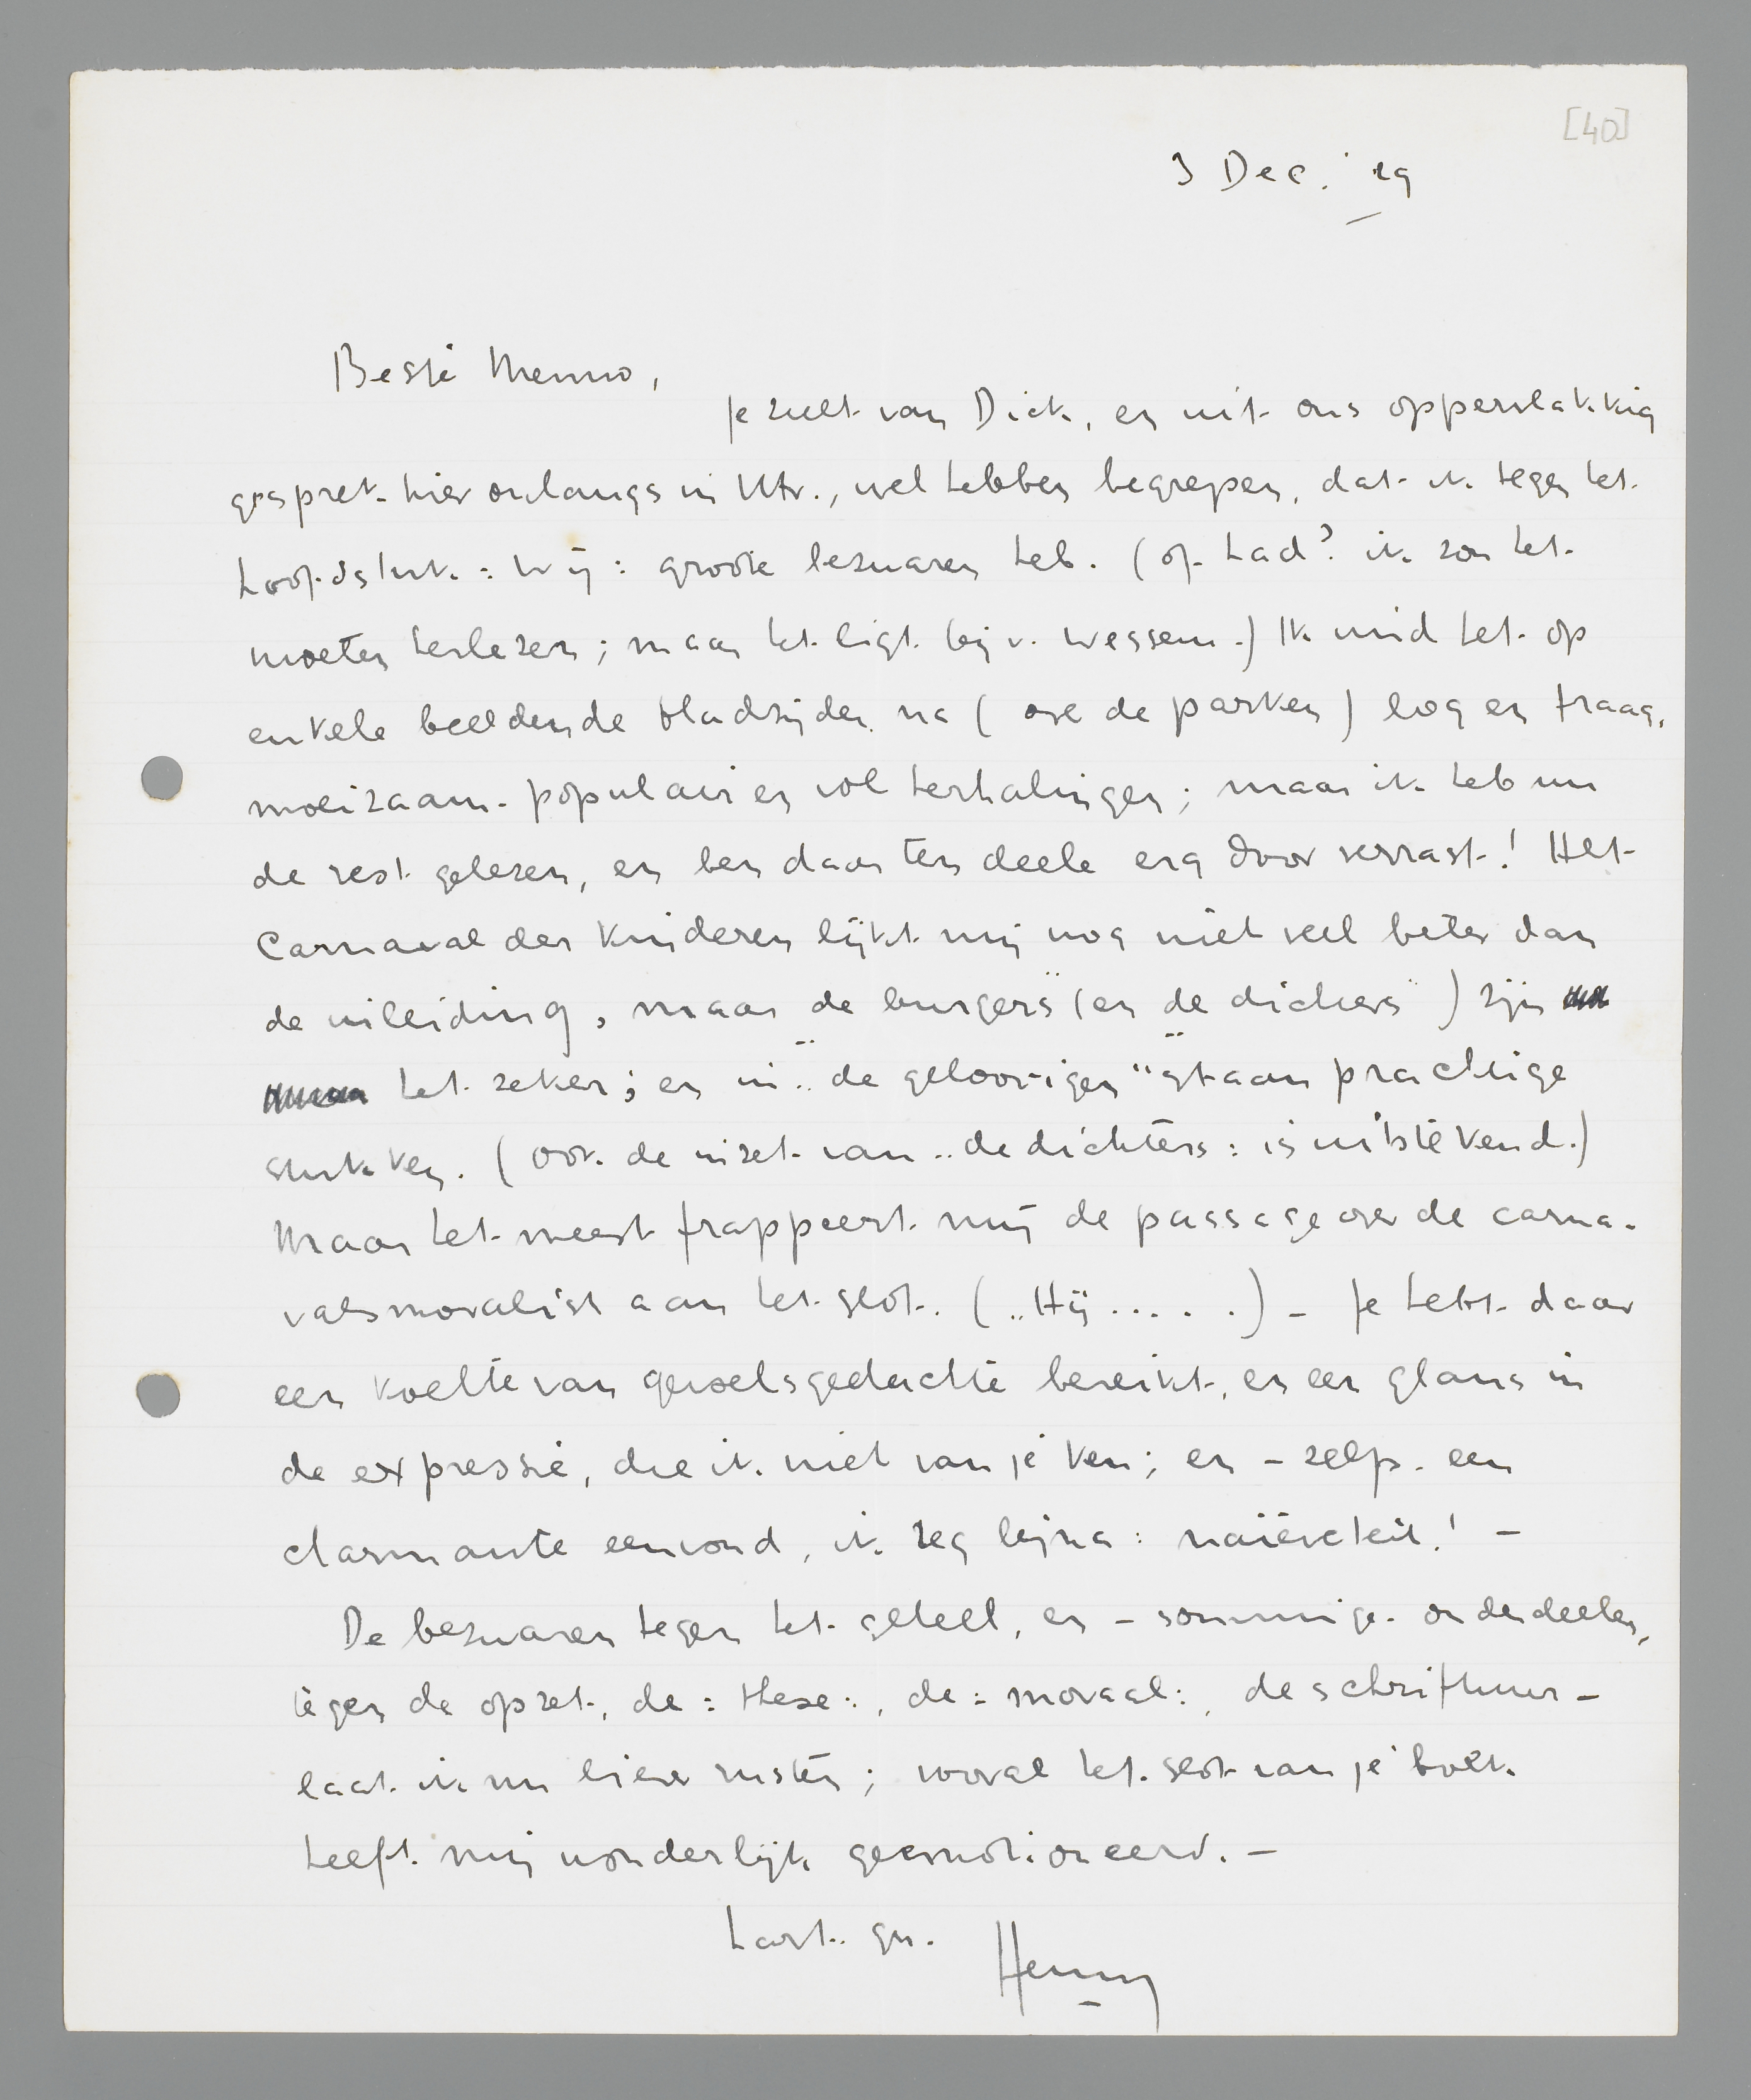 [40]
3 Dec. '29
Beste Menno,
Je zult van Dick, en uit ons oppervlakkig
gesprek hier onlangs in Utr., wel hebben begrepen, dat ik tegen het
hoofdstuk: Wij: groote bezwaren heb. (of had? ik zou het
moeten herlezen; maar het ligt bij v. Wessem.) Ik vind het op
enkele beeldende bladzijden na (over de parken) log en traag,
moeizaam-populair en vol herhalingen; maar ik heb nu
de rest gelezen, en ben daar ten deele erg door verrast! Het
Carnaval der Kinderen lijkt mij nog niet veel beter dan
de inleiding, maar "de burgers" (en "de dichters") zijn
het zeker; en in "de geloovigen" staan prachtige
stukken. (ook de inzet van "de dichters: is uitstekend.)
Maar het meest frappeert mij de passage over de carna-
valsmoralist aan het slot. ("Hij.....) - Je hebt daar
een koelte van gevoelsgedachte bereikt, en een glans in
de expressie, die ik niet van je ken; en - zelfs - een
charmante eenvoud, ik zeg bijna: naïeveteit! -
De bezwaren tegen het geheel, en - sommige - onderdeelen,
tegen de opzet, de: these:, de: moraal:, de schriftuur -
laat ik nu liever rusten; vooral het slot van je boek
heeft mij wonderlijk geemotioneerd. -
hart. gr. Henny